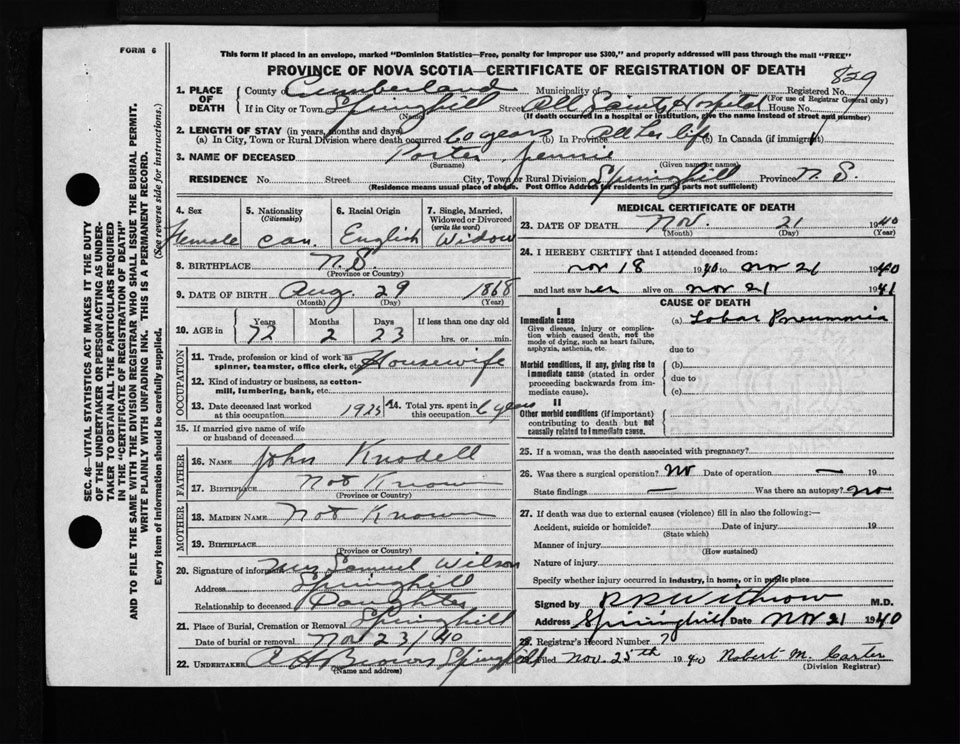 FORM 6
This form if placed in an envelope, marked "Dominion Statistics—Free, penalty for improper use $300," and properly addressed will pass through the mail "FREE"
PROVINCE OF NOVA SCOTIA—CERTIFICATE OF REGISTRATION OF DEATH
829
1. PLACE OF DEATH County of Cumberland Municipality of Registered No.
(For use of Registrar General only)
If in City or Town Springhill Street All Saints Hospital House No.
(Name) (If death occurred in a hospital or institution, give the name instead of street and number)
2. LENGTH OF STAY (in years, months and days)
(a) In City, Town or Rural Division where death occurred 60 years (b) In Province All her life (c) In Canada (if immigrant)
3. NAME OF DECEASED Porter Jennie
(Surname) (Given name or names)
RESIDENCE No. Street City, Town or Rural Division Springhill Province N. S.
(Residence means usual place of abode. Post Office Address for residents in rural parts not sufficient)
4. Sex Female
5. Nationality (Citizenship) Can.
6. Racial Origin English
7. Single, Married, Widowed or Divorced (write the word) Widow
8. BIRTHPLACE N.S.
(Province or Country)
9. DATE OF BIRTH Aug. 29 1868
(Month) (Day) (Year)
10. AGE in Years 72 Months 2 Days 23 If less than one day old
hrs. or min.
OCCUPATION
11. Trade, profession or kind of work as spinner, teamster, office clerk, etc. Housewife
12. Kind of industry or business, as cotton-mill, lumbering, bank, etc.
13. Date deceased last worked at this occupation 1925
14. Total yrs. spent in this occupation
15. If married give name of wife or husband of deceased
FATHER
16. NAME John Knodell
17. Birthplace Not Known
(Province or Country)
MOTHER
18. MAIDEN NAME Not Known
19. BIRTHPLACE
(Province or Country)
20. Signature of informant Mrs Samuel Wilson
Address Springhill
Relationship to deceased Daughter
21. Place of Burial, Cremation or Removal Springhill
Date of burial or removal Nov 23/40
22. UNDERTAKER Springhill
(Name and address)
MEDICAL CERTIFICATE OF DEATH
23. DATE OF DEATH Nov. 21 1940
(Month) (Day) (Year)
24. I HEREBY CERTIFY that I attended deceased from:
Nov 18 1940 to Nov 21 1940
and last saw her alive on Nov 21 1941
CAUSE OF DEATH
I
Immediate cause
Give disease, injury or complication which caused death, not the mode of dying, such as heart failure, asphyxia, asthenia, etc.
(a) Lobar Pneumonia
due to
Morbid conditions, if any, giving rise to immediate cause (stated in order proceeding backwards from immediate cause).
(b)
due to
(c)
II
Other morbid conditions (if important) contributing to death but not causally related to immediate cause.
25. If a woman, was the death associated with pregnancy?
26. Was there a surgical operation? No Date of operation — 19
State findings — Was there an autopsy? No
27. If death was due to external causes (violence) fill in also the following:—
Accident, suicide or homicide? Date of injury 19
(State which)
Manner of injury
(How sustained)
Nature of injury
Specify whether injury occurred in industry, in home, or in public place
Signed by Withrow M.D.
Address Springhill Date Nov 21 1940
28. Registrar's Record Number
Filed Nov. 25th 1940 Robert M. Carter
(Division Registrar)
SEC 46—VITAL STATISTICS ACT MAKES IT THE DUTY OF THE UNDERTAKER OR PERSON ACTING AS UNDERTAKER TO OBTAIN ALL THE PARTICULARS REQUIRED IN THE "CERTIFICATE OF REGISTRATION OF DEATH"
AND TO FILE THE SAME WITH THE DIVISION REGISTRAR WHO SHALL ISSUE THE BURIAL PERMIT.
WRITE PLAINLY WITH UNFADING INK. THIS IS A PERMANENT RECORD.
Every item of information should be carefully supplied. (See reverse side for instructions.)